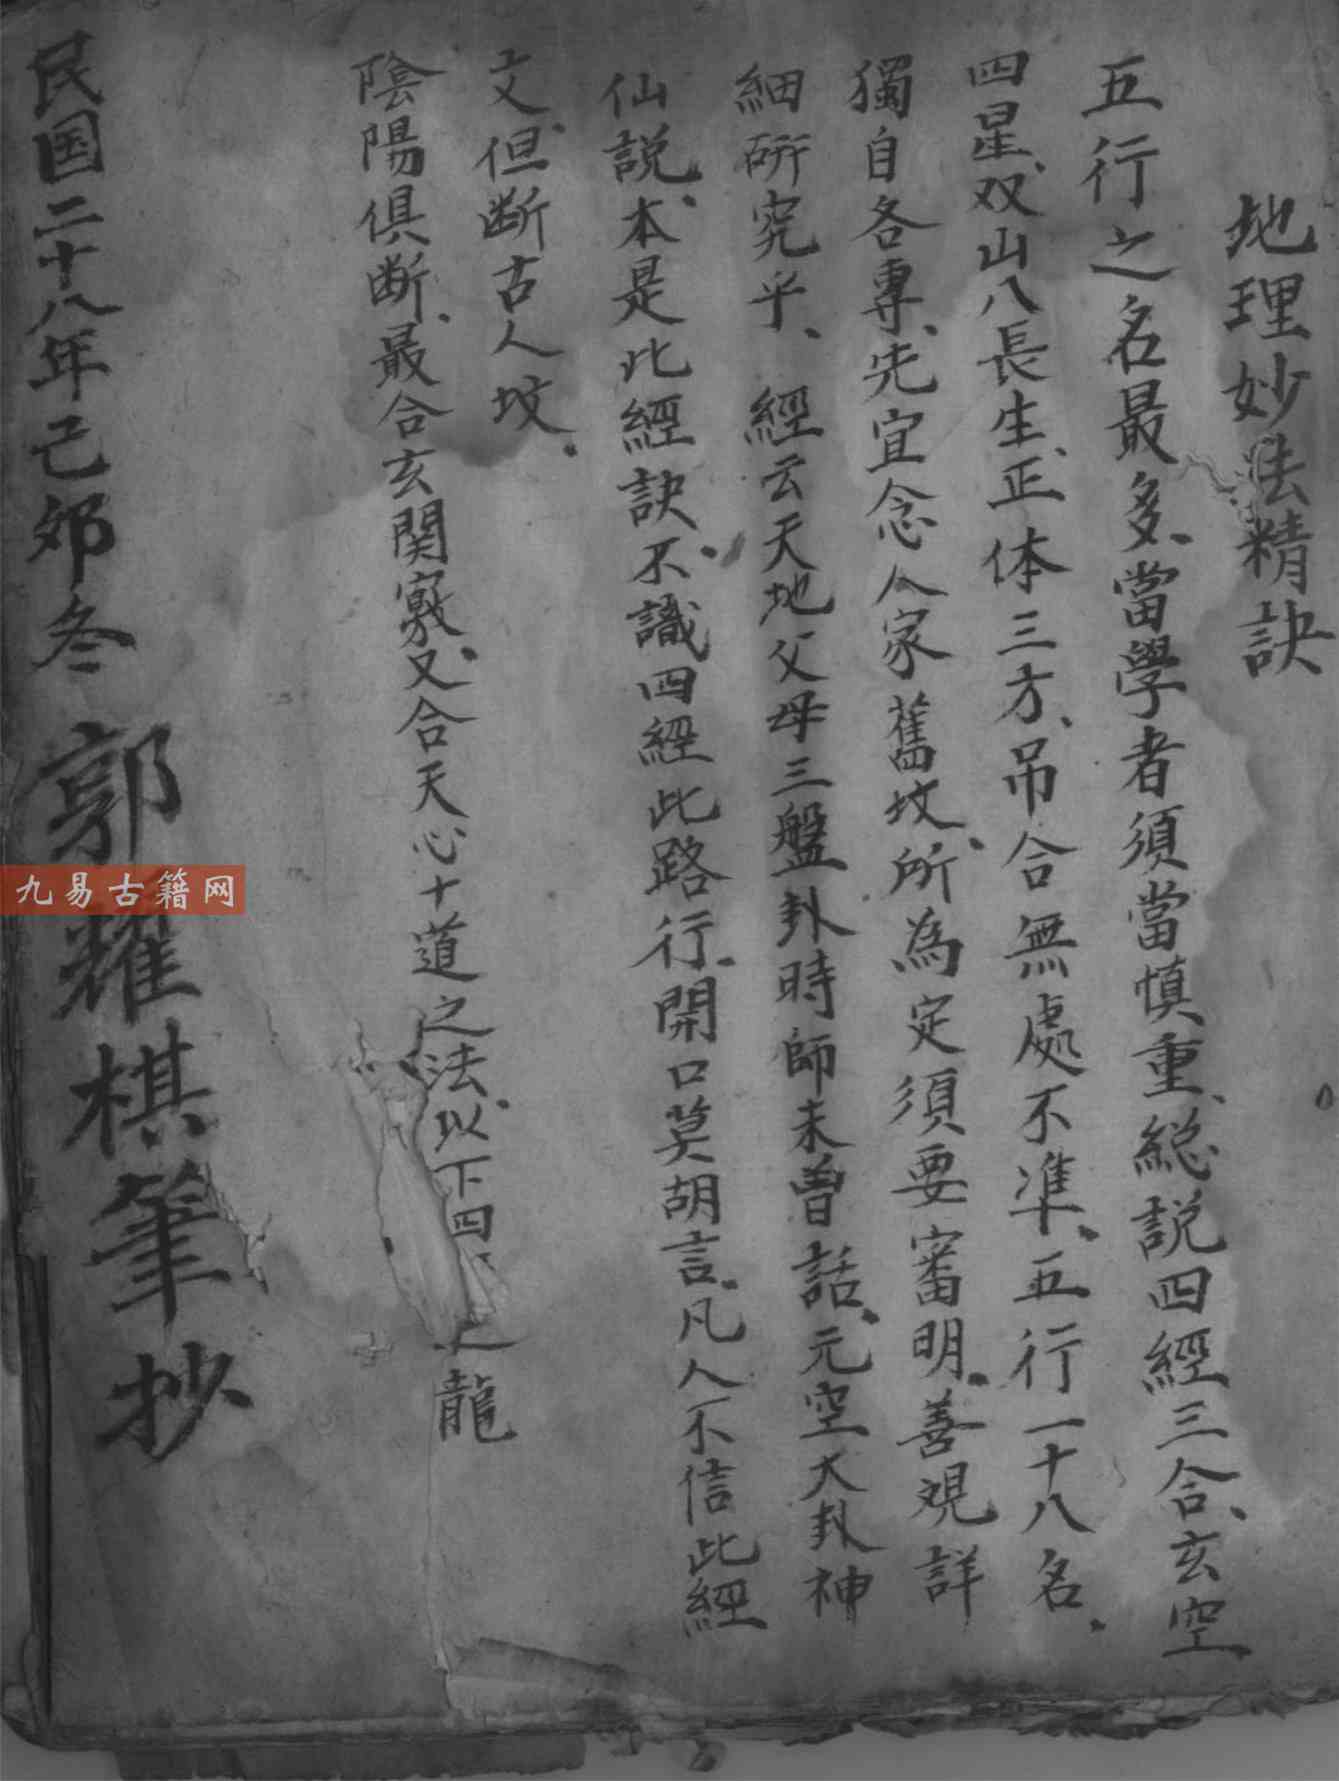 地理妙法精訣
五行之名最多、當學者須當慎重、総說四經三合、玄空
四星、双山八長生、正体三方、吊合無處不準、五行一十八名。
獨自各專、先宜念人家舊坟、所為定須要審明、善覌詳
細研究乎、經云天地父母三盤卦時師未曾話、元空大卦神
仙説、本是此經訣、不識四經此路行、開口莫胡言、凡人不信此經
文、但断古人坟。
陰陽俱断、最合玄関竅、又合天心十道之法、以下四之龍
民国二十八年己夘冬 郭耀棋筆抄
九易古籍网